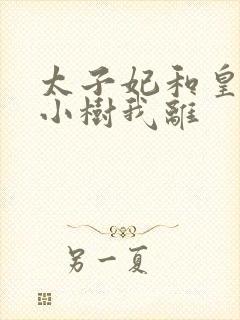 太子妃和皇
小樹我離
另一夏